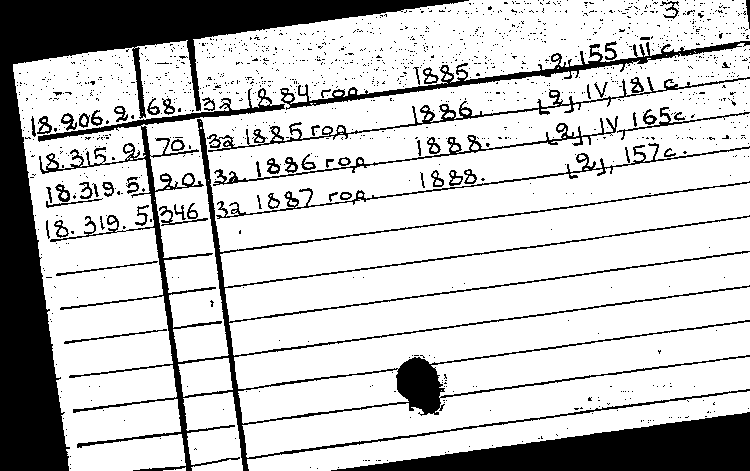 3
18.206.2. 68. За 1884 год. 1885. [2], 155, III с.
18.315.2. 70. За 1885 год. 1886. [2], IV, 181 с.
18.319.5. 20. За 1886 год. 1888. [2], IV, 165 с.
18.319.5. 346 За 1887 год. 1888. [2], 157 с.